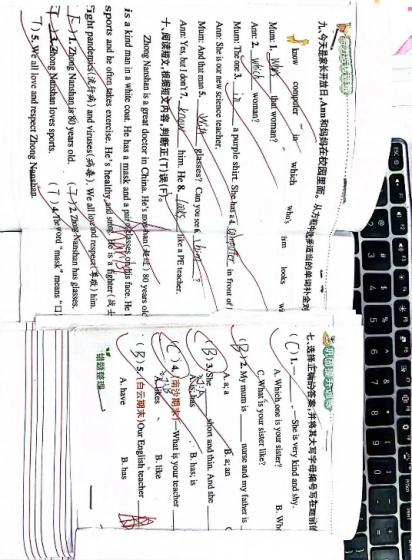 九、今天是家长开放日,Ann和妈妈在校园里面。从方框中选择适当的单词补全对
know computer in which who him looks
Mum: 1. Who that woman?
Ann: 2. Which woman?
Mum: The one 3. in a purple shirt. She has a 4. computer in front of
Ann: She is our new science teacher.
Mum: And that man 5. With glasses? Can you see 6. him ?
Ann: Yes, but I don't 7. know him. He 8. looks like a PE teacher.
十、阅读短文,根据短文内容,判断正(T)误(F)。
Zhong Nanshan is a great doctor in China. He's
years old
is a kind man in a white coat. He has a mask and a pair
glasses on his face. He l
sports and he often takes exercise. He's healthy and
He is a fighter(战士
fight pandemics(流行病) and viruses(病毒). We all love and respect(尊敬) him.
1. Zhong Nanshan is 80 years old.
(T) 2. Zhong Nanshan has glasses.
3. Zhong Nanshan loves sports.
(T) 4. The word "mask" means "口
(T) 5. We all love and respect Zhong Nanshan.
七、选择正确的答案,并将其大写字母编号写在题前
(C) 1. — —She is very kind and shy.
A. Which one is your sister?
B. Who
C. What is your sister like?
(B) 2. My mum is nurse and my father is
A. a; a
B. a; an
(B) 3. She short and thin. And she
A. is; has
B. has; is
(C) 4. (南沙期末)—What is your teacher
A. likes
B. like
(B) 5. (白云期末)Our English teacher
A. have
B. has
错题整理